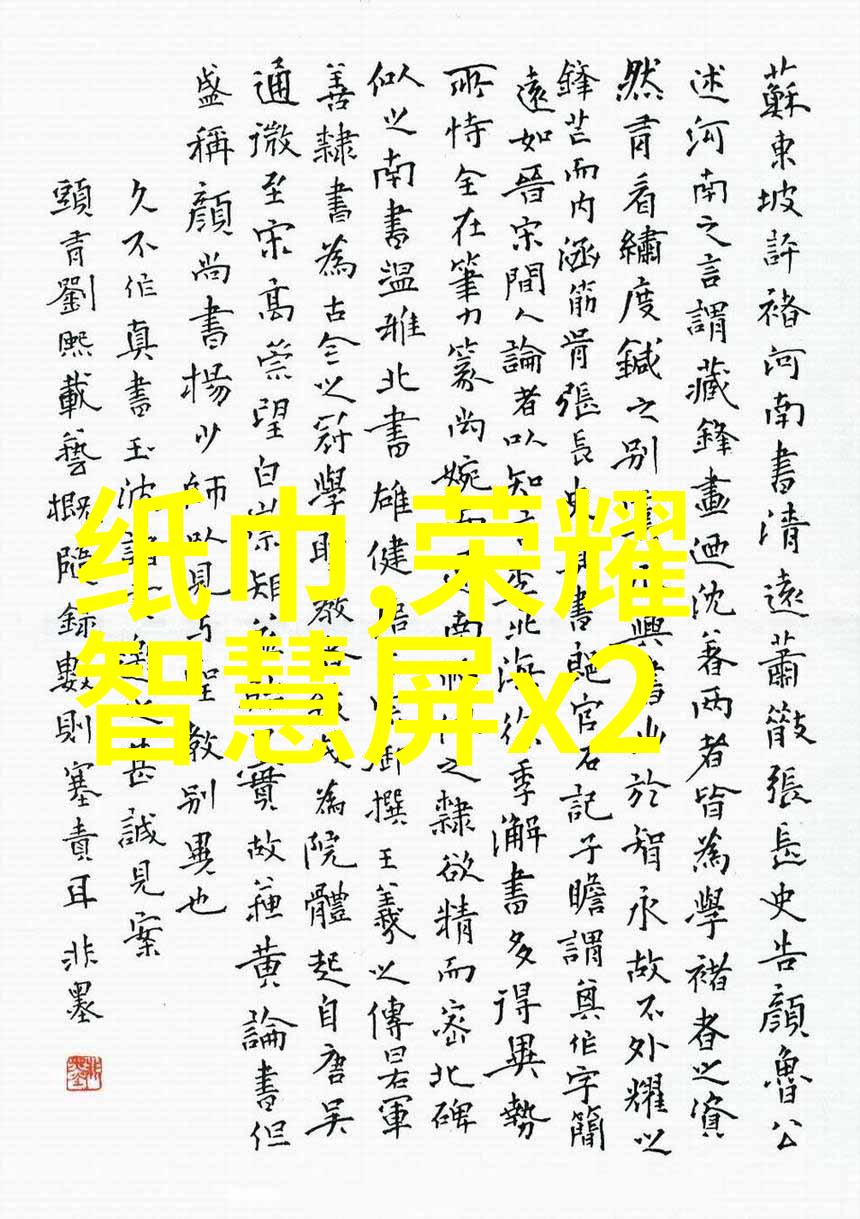 蘇東坡評褚河南書清遠蕭散張長史告顏魯公
述河南之言謂藏鋒畫迺沈著兩者皆為學褚者之資
然有看繡度鍼之別興於智永故不外耀以
鋒芒而內涵筋骨張長史真書郎官石記子瞻謂其作字簡
遠如晉宋間人論者以知北海徐季海書多得異勢
所恃全在筆力篆尚婉而通南帖似之隸欲精而密北碑
似之南書溫雅北書雄健御撰王羲之傳曰右軍
善隸書為古今之冠學為院體起自唐吳
通微至宋高崇望白崇矩益實故蘇黃論書但
盛稱顏尚書楊少師以見與聖教別異也
久不作真書玉波甚誠見案
頭有劉熙載藝概隨錄數則塞責耳 非墨
纸巾,荣耀
智慧屏x2